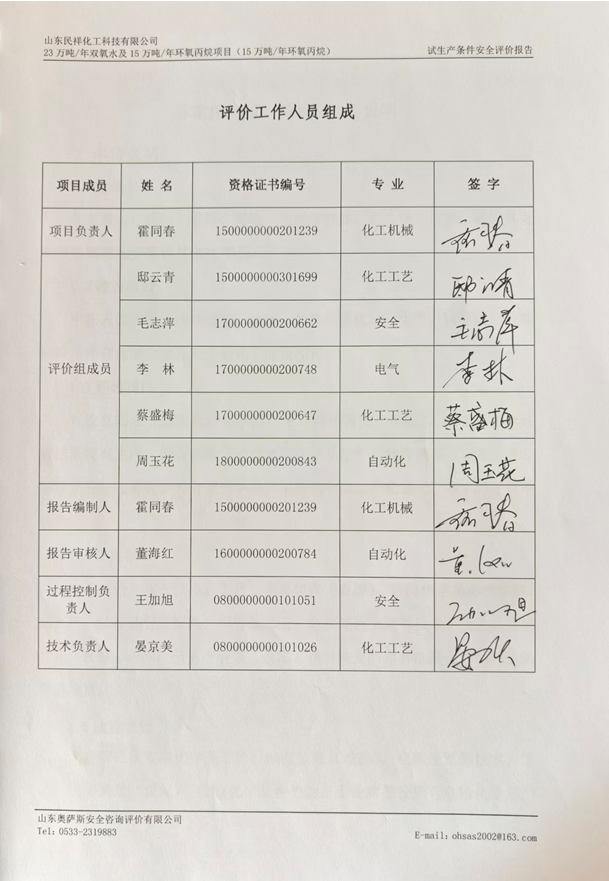 山东民祥化工科技有限公司
23万吨/年双氧水及15万吨/年环氧丙烷项目（15万吨/年环氧丙烷） 试生产条件安全评价报告
评价工作人员组成
项目成员 姓 名 资格证书编号 专 业 签 字
项目负责人 霍同春 1500000000201239 化工机械
评价组成员 邸云青 1500000000301699 化工工艺 邸云青
毛志萍 1700000000200662 安全
李 林 1700000000200748 电气 李林
蔡盛梅 1700000000200647 化工工艺 蔡盛梅
周玉花 1800000000200843 自动化 周玉花
报告编制人 霍同春 1500000000201239 化工机械
报告审核人 董海红 1600000000200784 自动化
过程控制负
责人 王加旭 0800000000101051 安全
技术负责人 晏京美 0800000000101026 化工工艺
山东奥萨斯安全咨询评价有限公司
Tel：0533-2319883 E-mail：ohsas2002@163.com